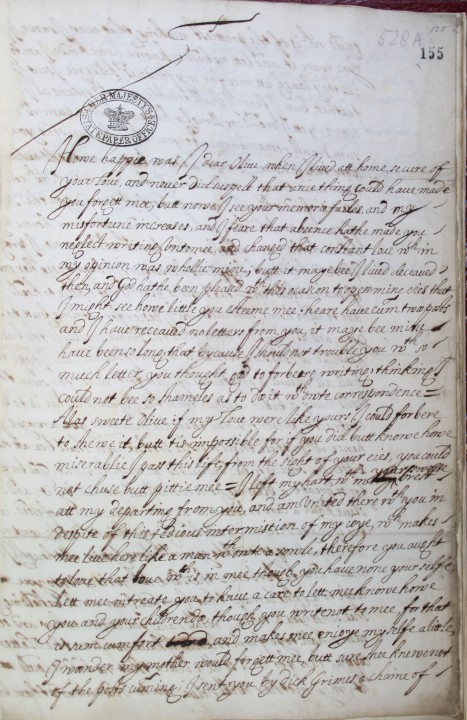 528A
155
HER MAJESTY'S
STATE PAPER OFFICE
Howe happie was I dear Olive when I lived att home, secure of
your Love, and never did suspect that anie thing could have made
you forgett mee; butt nowe I see your memorie failes, and my
misfortune increases, and I feare that absence hathe made you
neglect writing untomee, and changed that constant love wch in
my opinion was whollie mine, butt it maye bee I lived deceaved
then, and God hathe been pleased wth this ocasion to open mine eies that
I might see howe little you esteme mee. heare have cum two posts
and I have receaved no letters from you, it maye bee mine
have been so long that bycause I should not trouble you wth so
much letter, you thought to forbeare writing; thinking I
could not bee so shameles as to do it wthowte correspondence
Alas sweete Olive if my Love were like yours I could forbere
to shewe it, butt tis impossible for if you did butt knowe howe
miserablie I pass this life, from the sight of your eies, you could
not chuse butt pittie mee I left my hart wth your
att my departing from you, and am united there wth you in
despite of this tedious intermission of my joye, wch makes
mee live here like a man wthowte a sowle, therefore you aught
to love that wch is in mee though you have none your selfe,
Lett mee intreate you to have a care to lett mee knowe howe
you and your children do, though you write not to mee, for that
is sum cumfort and makes mee enjoye my selfe a little,
I wonder my mother would forgett mee, butt sure shee knewe not
of the posts cuming; I sent you by Dick Grimes a chaine of